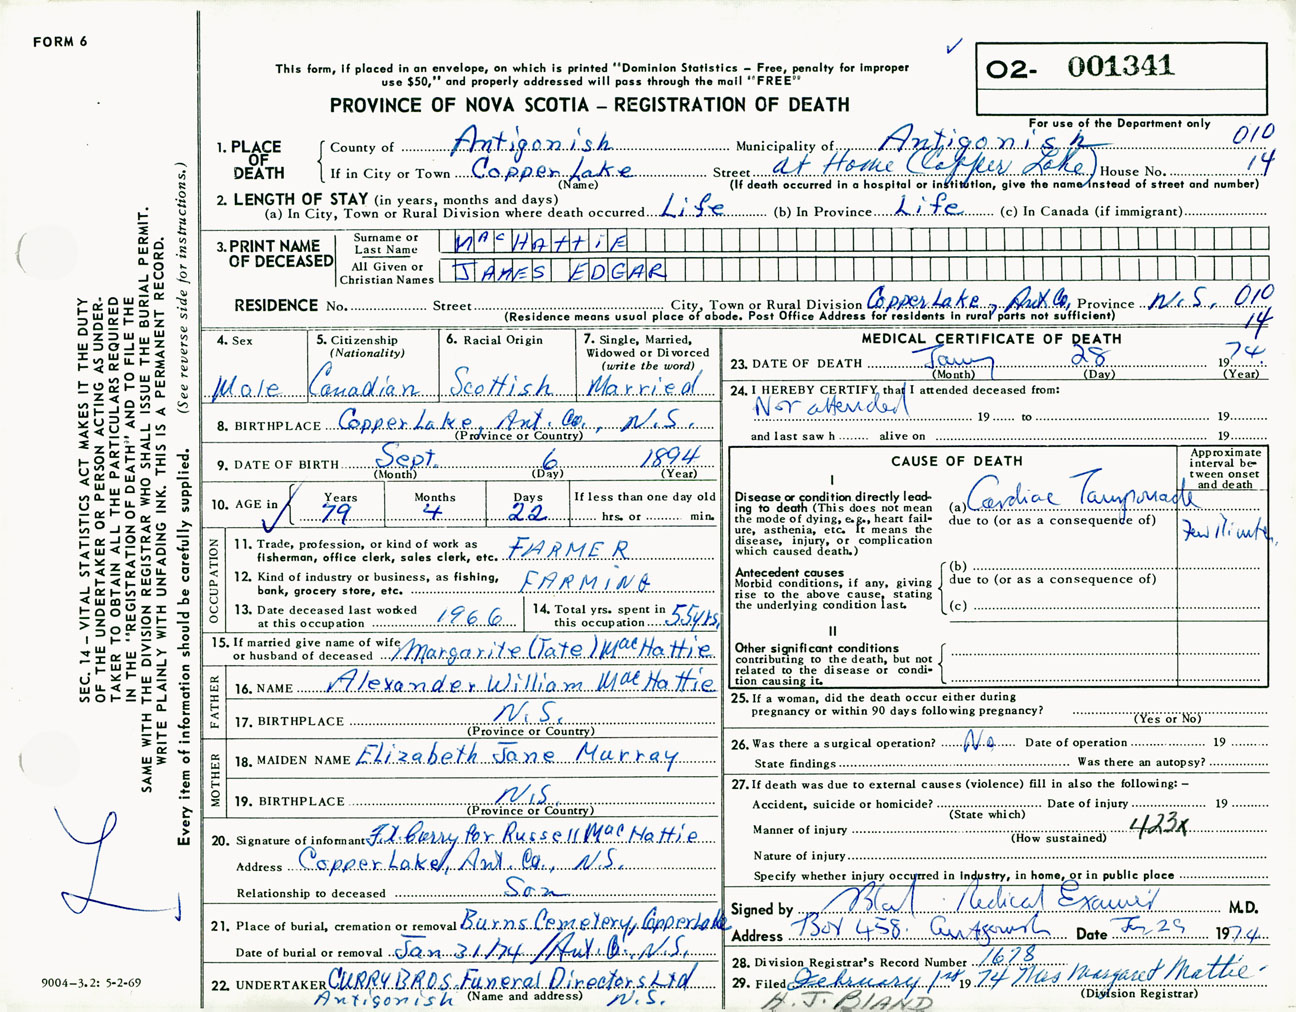 FORM 6
This form, if placed in an envelope, on which is printed "Dominion Statistics – Free, penalty for improper
use $50," and properly addressed will pass through the mail "FREE"
PROVINCE OF NOVA SCOTIA – REGISTRATION OF DEATH
O2- 001341
For use of the Department only
010
14
1. PLACE OF DEATH
County of Antigonish Municipality of Antigonish
If in City or Town Copper Lake Street at Home (Copper Lake) House No.
(Name) (If death occurred in a hospital or institution, give the name instead of street and number)
2. LENGTH OF STAY (in years, months and days)
(a) In City, Town or Rural Division where death occurred Life (b) In Province Life (c) In Canada (if immigrant)
3. PRINT NAME OF DECEASED
Surname or Last Name MacHATTIE
All Given or Christian Names JAMES EDGAR
RESIDENCE No. Street City, Town or Rural Division Copper Lake, Ant. Co, Province N.S. 010
(Residence means usual place of abode. Post Office Address for residents in rural parts not sufficient) 14
4. Sex
Male
5. Citizenship
(Nationality)
Canadian
6. Racial Origin
Scottish
7. Single, Married,
Widowed or Divorced
(write the word)
Married
8. BIRTHPLACE Copper Lake, Ant. Co., N.S.
(Province or Country)
9. DATE OF BIRTH Sept. 6 1894
(Month) (Day) (Year)
10. AGE in
Years Months Days If less than one day old
79 4 22 hrs. or min.
OCCUPATION
11. Trade, profession, or kind of work as
fisherman, office clerk, sales clerk, etc. FARMER
12. Kind of industry or business, as fishing,
bank, grocery store, etc. FARMING
13. Date deceased last worked
at this occupation 1966
14. Total yrs. spent in
this occupation 55 yrs.
15. If married give name of wife
or husband of deceased Margarite (Tate) MacHattie
FATHER
16. NAME Alexander William MacHattie
17. BIRTHPLACE N.S.
(Province or Country)
MOTHER
18. MAIDEN NAME Elizabeth Jane Murray
19. BIRTHPLACE N.S.
(Province or Country)
20. Signature of informant Curry Per Russell MacHattie
Address Copper Lake, Ant. Co., N.S.
Relationship to deceased Son
21. Place of burial, cremation or removal Burns Cemetery, Copper Lake
Date of burial or removal Jan 31/74 / Ant. C. N.S.
22. UNDERTAKER CURRY BROS. Funeral Directors Ltd
(Name and address)
Antigonish N.S.
MEDICAL CERTIFICATE OF DEATH
23. DATE OF DEATH 28 1974.
(Month) (Day) (Year)
24. I HEREBY CERTIFY that I attended deceased from:
Not attended 19 to 19
and last saw h alive on 19
CAUSE OF DEATH
Approximate
interval be-
tween onset
and death
I
Disease or condition directly lead-
ing to death (This does not
mean the mode of dying, e.g., heart fail-
ure, asthenia, etc. It means the
disease, injury, or complication
which caused death.)
(a) Cardiac Tamponade
due to (or as a consequence of)
Few Minutes
Antecedent causes
Morbid conditions, if any, giving
rise to the above cause, stating
the underlying condition last.
(b)
due to (or as a consequence of)
(c)
II
Other significant conditions
contributing to the death, but not
related to the disease or condi-
tion causing it.
25. If a woman, did the death occur either during
pregnancy or within 90 days following pregnancy?
(Yes or No)
26. Was there a surgical operation? No Date of operation 19
State findings Was there an autopsy?
27. If death was due to external causes (violence) fill in also the following: –
Accident, suicide or homicide? Date of injury 19
(State which)
Manner of injury 423x
(How sustained)
Nature of injury
Specify whether injury occurred in industry, in home, or in public place
Signed by Medical Examiner M.D.
Address Box 458. Antigonish Date Jan 29 1974
28. Division Registrar's Record Number 1678
29. Filed February 1st 1974 Mrs Margaret Mattie
(Division Registrar)
H. J. BLAND
SEC. 14 – VITAL STATISTICS ACT MAKES IT THE DUTY
OF THE UNDERTAKER OR PERSON ACTING AS UNDER-
TAKER TO OBTAIN ALL THE PARTICULARS REQUIRED
IN THE "REGISTRATION OF DEATH" AND TO FILE THE
SAME WITH THE DIVISION REGISTRAR WHO SHALL ISSUE THE BURIAL PERMIT.
WRITE PLAINLY WITH UNFADING INK. THIS IS A PERMANENT RECORD.
Every item of information should be carefully supplied. (See reverse side for instructions.)
9004-3.2: 5-2-69